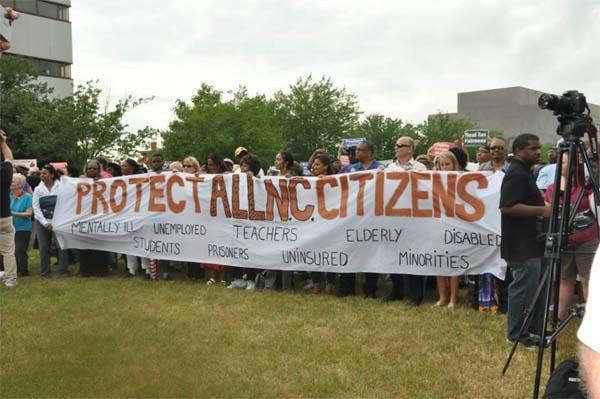 PROTECT ALL N.C. CITIZENS
MENTALLY ILL UNEMPLOYED TEACHERS ELDERLY DISABLED
STUDENTS PRISONERS UNINSURED MINORITIES
Real Tax
Fairness